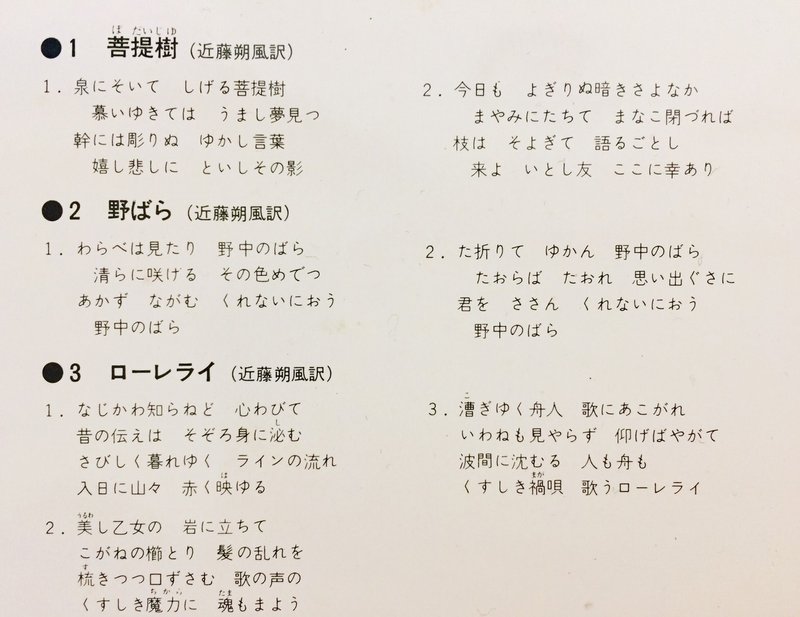 ●1 菩提樹（近藤朔風訳）
1．泉にそいて しげる菩提樹
慕いゆきては うまし夢見つ
幹には彫りぬ ゆかし言葉
嬉し悲しに といしその影
2．今日も よぎりぬ暗きさよなか
まやみにたちて まなこ閉づれば
枝は そよぎて 語るごとし
来よ いとし友 ここに幸あり
●2 野ばら（近藤朔風訳）
1．わらべは見たり 野中のばら
清らに咲ける その色めでつ
あかず ながむ くれないにおう
野中のばら
2．た折りて ゆかん 野中のばら
たおらば たおれ 思い出ぐさに
君を ささん くれないにおう
野中のばら
●3 ローレライ（近藤朔風訳）
1．なじかわ知らねど 心わびて
昔の伝えは そぞろ身に泌む
さびしく暮れゆく ラインの流れ
入日に山々 赤く映ゆる
2．美し乙女の 岩に立ちて
こがねの櫛とり 髪の乱れを
梳きつつ口ずさむ 歌の声の
くすしき魔力に 魂もまよう
3．漕ぎゆく舟人 歌にあこがれ
いわねも見やらず 仰げばやがて
波間に沈むる 人も舟も
くすしき禍唄 歌うローレライ